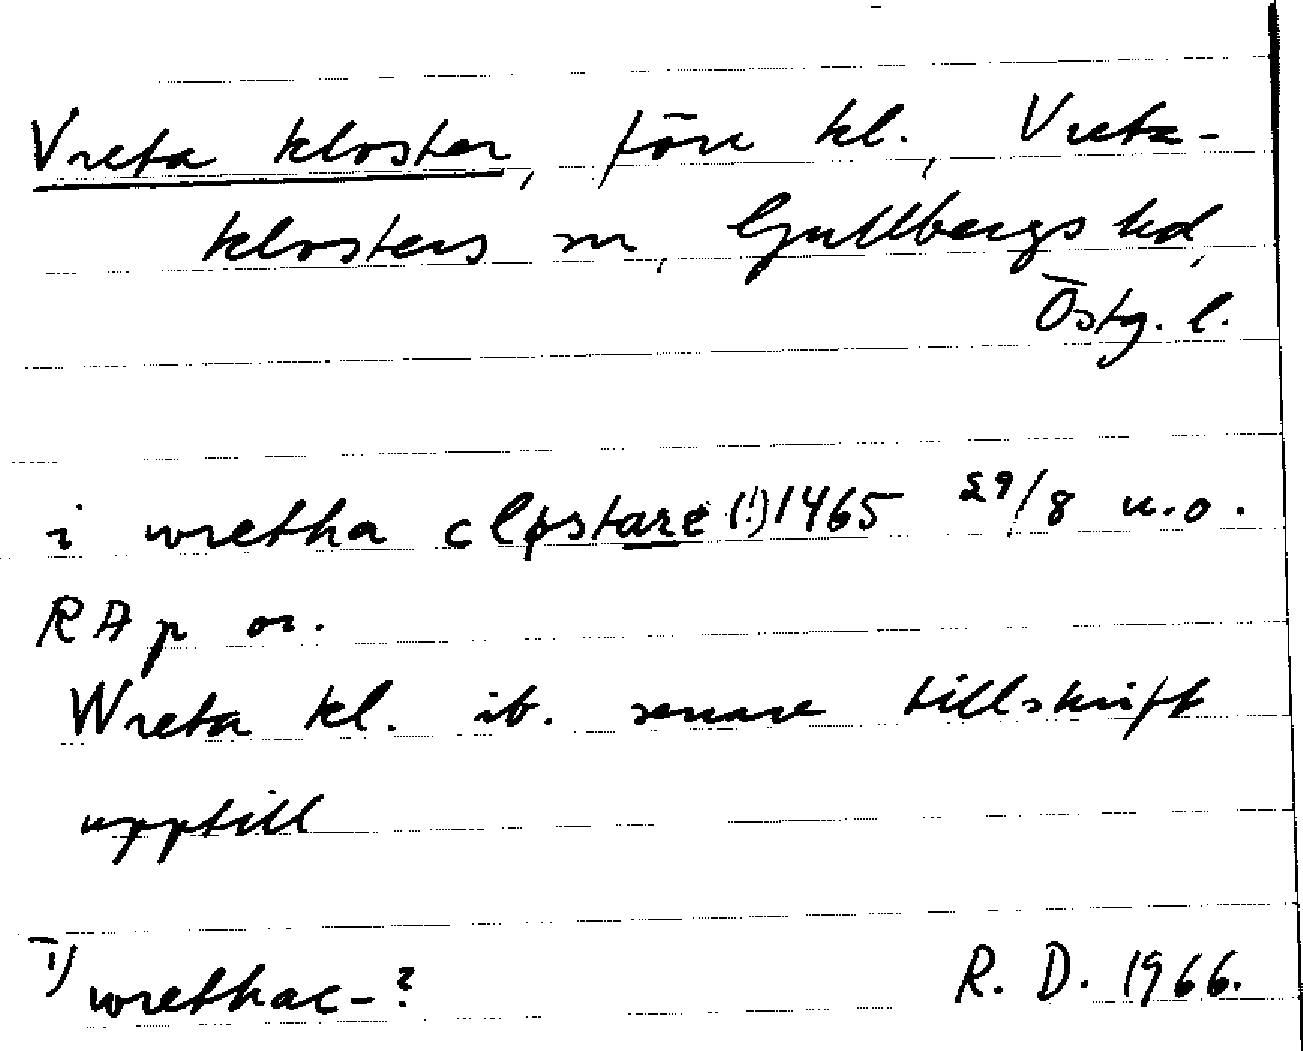 Vreta kloster, före kl., Vreta-
klosters sn, Gullbergs hd,
Östg. l.
i wretha cløstare (!) 1465 29/8 u.o.
RAp or.
Wreta kl. ib. senare tillskrift
upptill
1) wrethac-?
R. D. 1966.